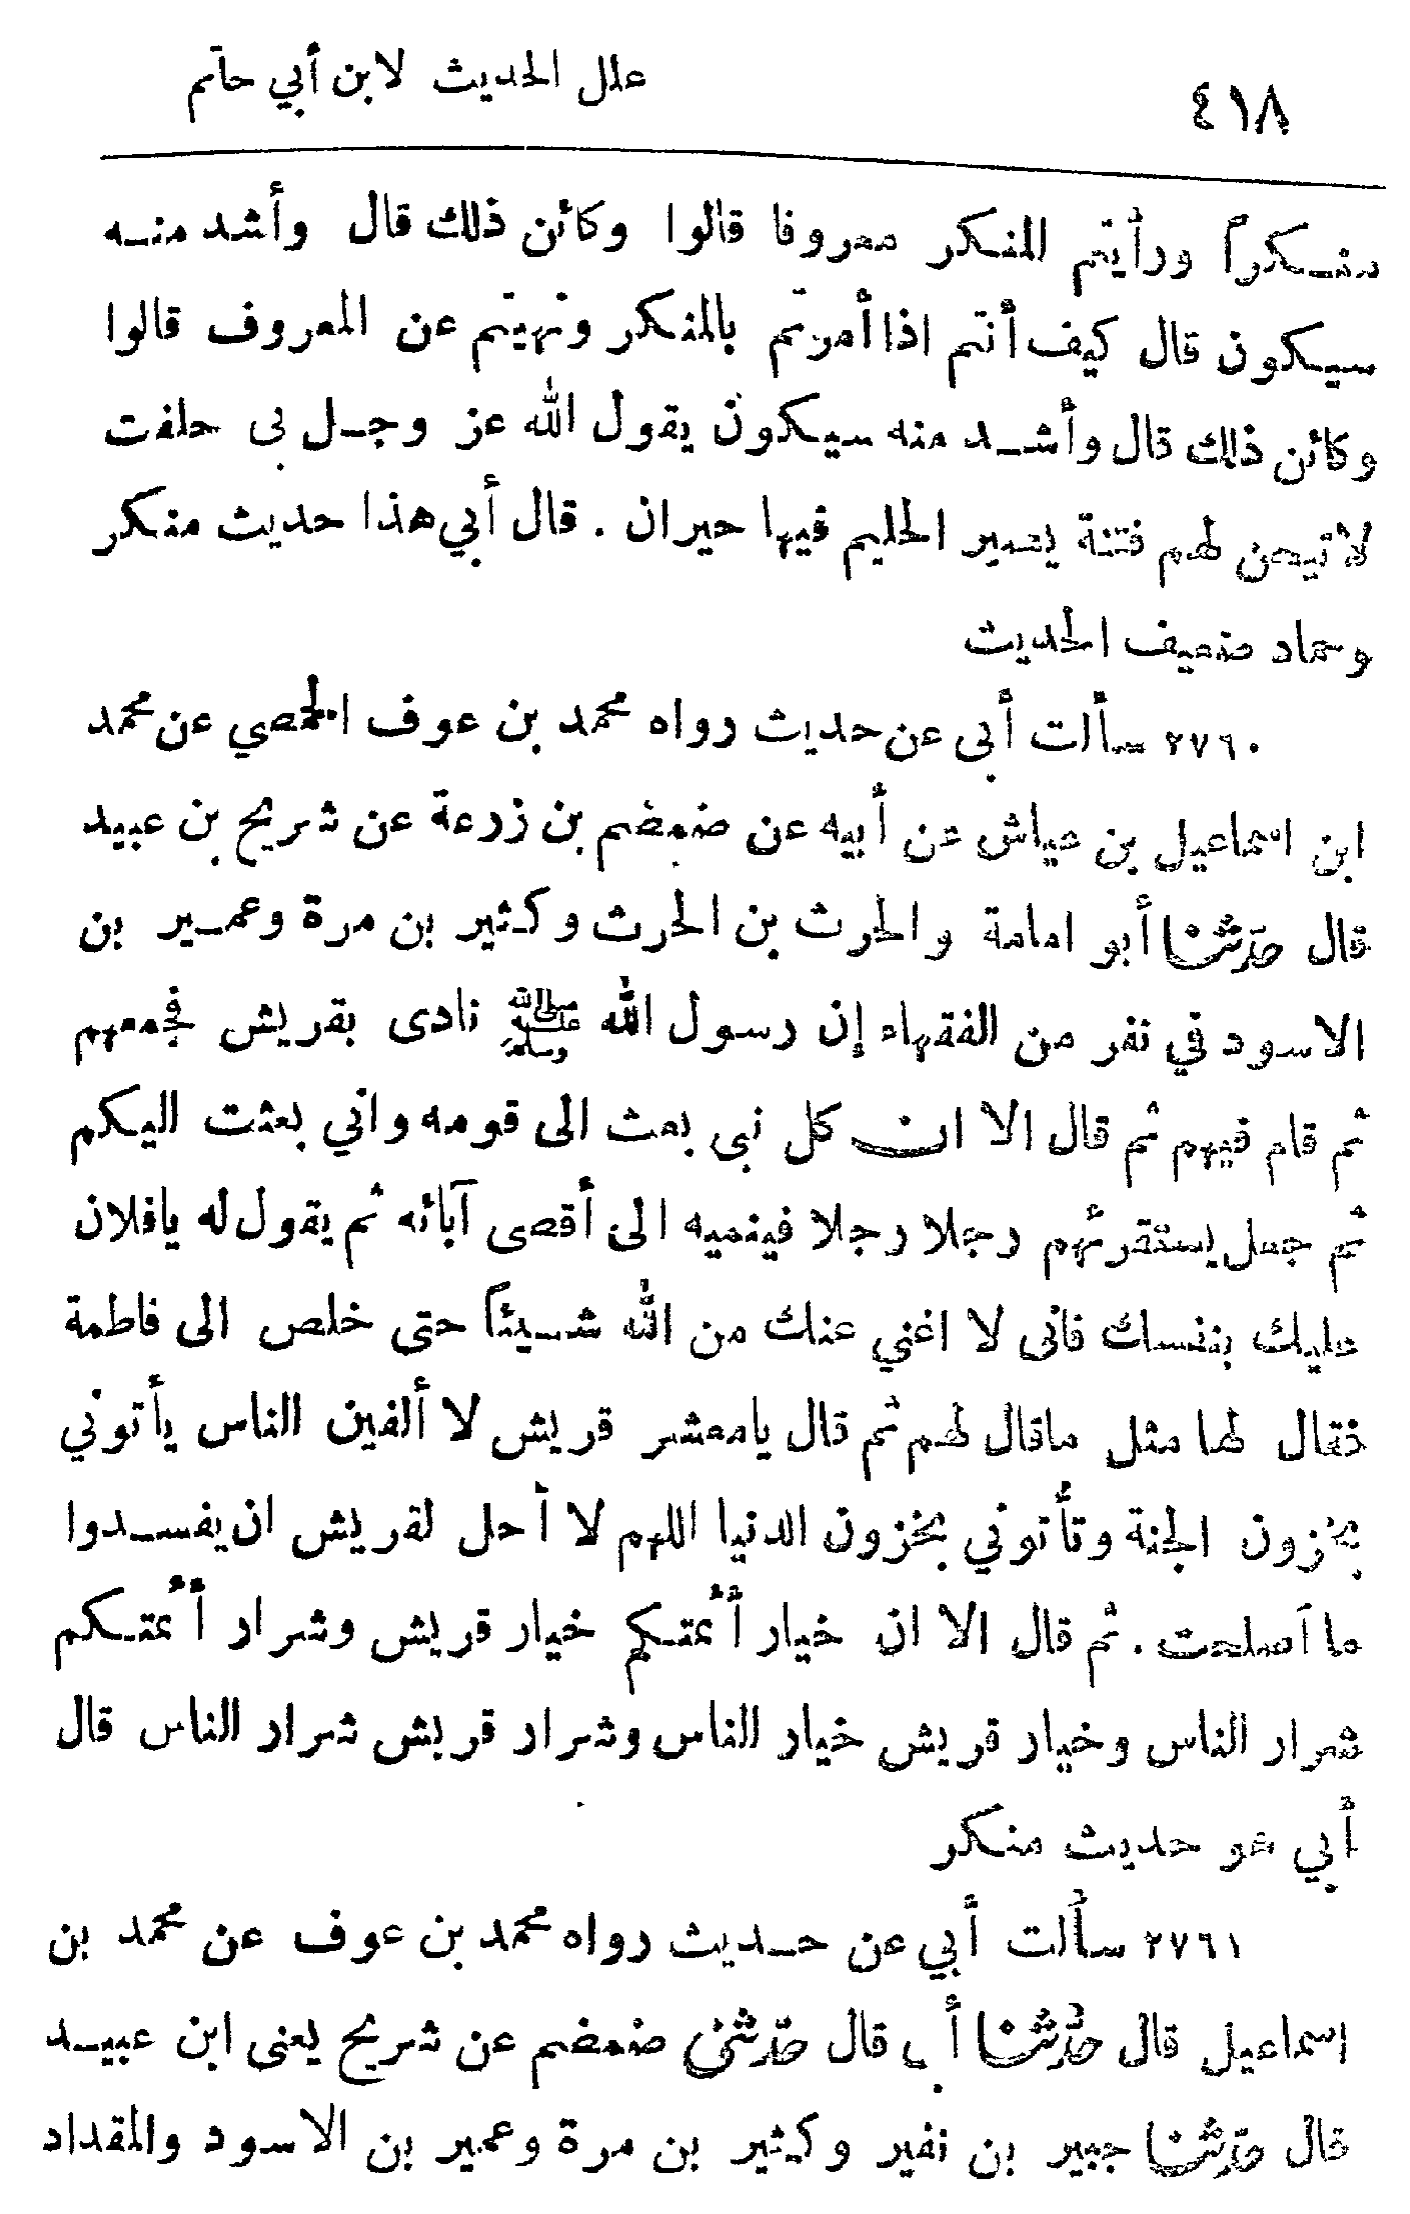 ٤١٨
علل الحديث لابن أبي حاتم
منكراً ورأيتم المنكر معروفا قالوا وكائن ذلك قال وأشد منه
سيكون قال كيف أنتم اذا أمرتم بالمنكر ونهيتم عن المعروف قالوا
وكائن ذلك قال وأشد منه سيكون يقول الله عز وجل بى حلفت
لاتيحن لهم فتنة يصير الحليم فيها حيران . قال أبي هذا حديث منكر
وحماد ضعيف الحديث
٢٧٦٠ سألت أبى عن حديث رواه محمد بن عوف الحمصي عن محمد
ابن اسماعيل بن عياش عن أبيه عن ضمضم بن زرعة عن شريح بن عبيد
قال حدثنا أبو امامة والحرث بن الحرث وكثير بن مرة وعمير بن
الاسود في نفر من الفقهاء إن رسول الله ﷺ نادى بقريش فجمعهم
ثم قام فيهم ثم قال الا ان كل نبى بعث الى قومه واني بعثت اليكم
ثم جعل يستقرئهم رجلا رجلا فينميه الى أقصى آبائه ثم يقول له يافلان
عليك بنفسك فانى لا اغني عنك من الله شيئاً حتى خلص الى فاطمة
فقال لها مثل ماقال لهم ثم قال يامعشر قريش لا ألفين الناس يأتوني
بخزون الجنة وتأتوني بخزون الدنيا اللهم لا أحل لقريش ان يفسدوا
ما أصلحت . ثم قال الا ان خيار أئمتكم خيار قريش وشرار أئمتكم
شرار الناس وخيار قريش خيار الناس وشرار قريش شرار الناس قال
أبي هو حديث منكر
٢٧٦١ سألت أبي عن حديث رواه محمد بن عوف عن محمد بن
اسماعيل قال حدثنا أبى قال حدثنى ضمضم عن شريح يعنى ابن عبيد
قال حدثنا جبير بن نفير وكثير بن مرة وعمير بن الاسود والمقداد